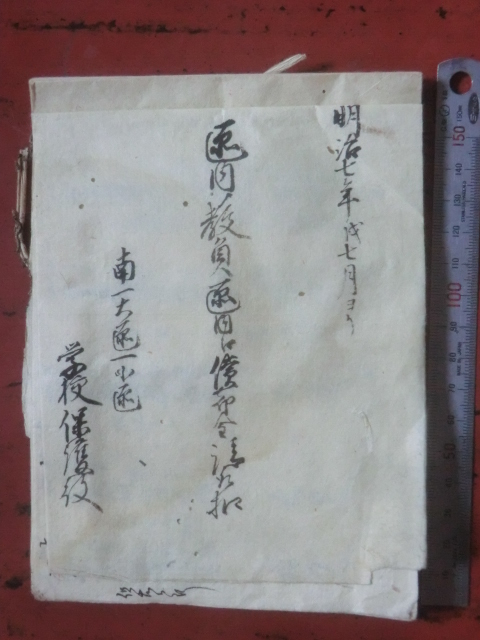 明治七年戌七月ヨリ
区内教員区内口償却金請取扣
南一大区一小区
学校保護役